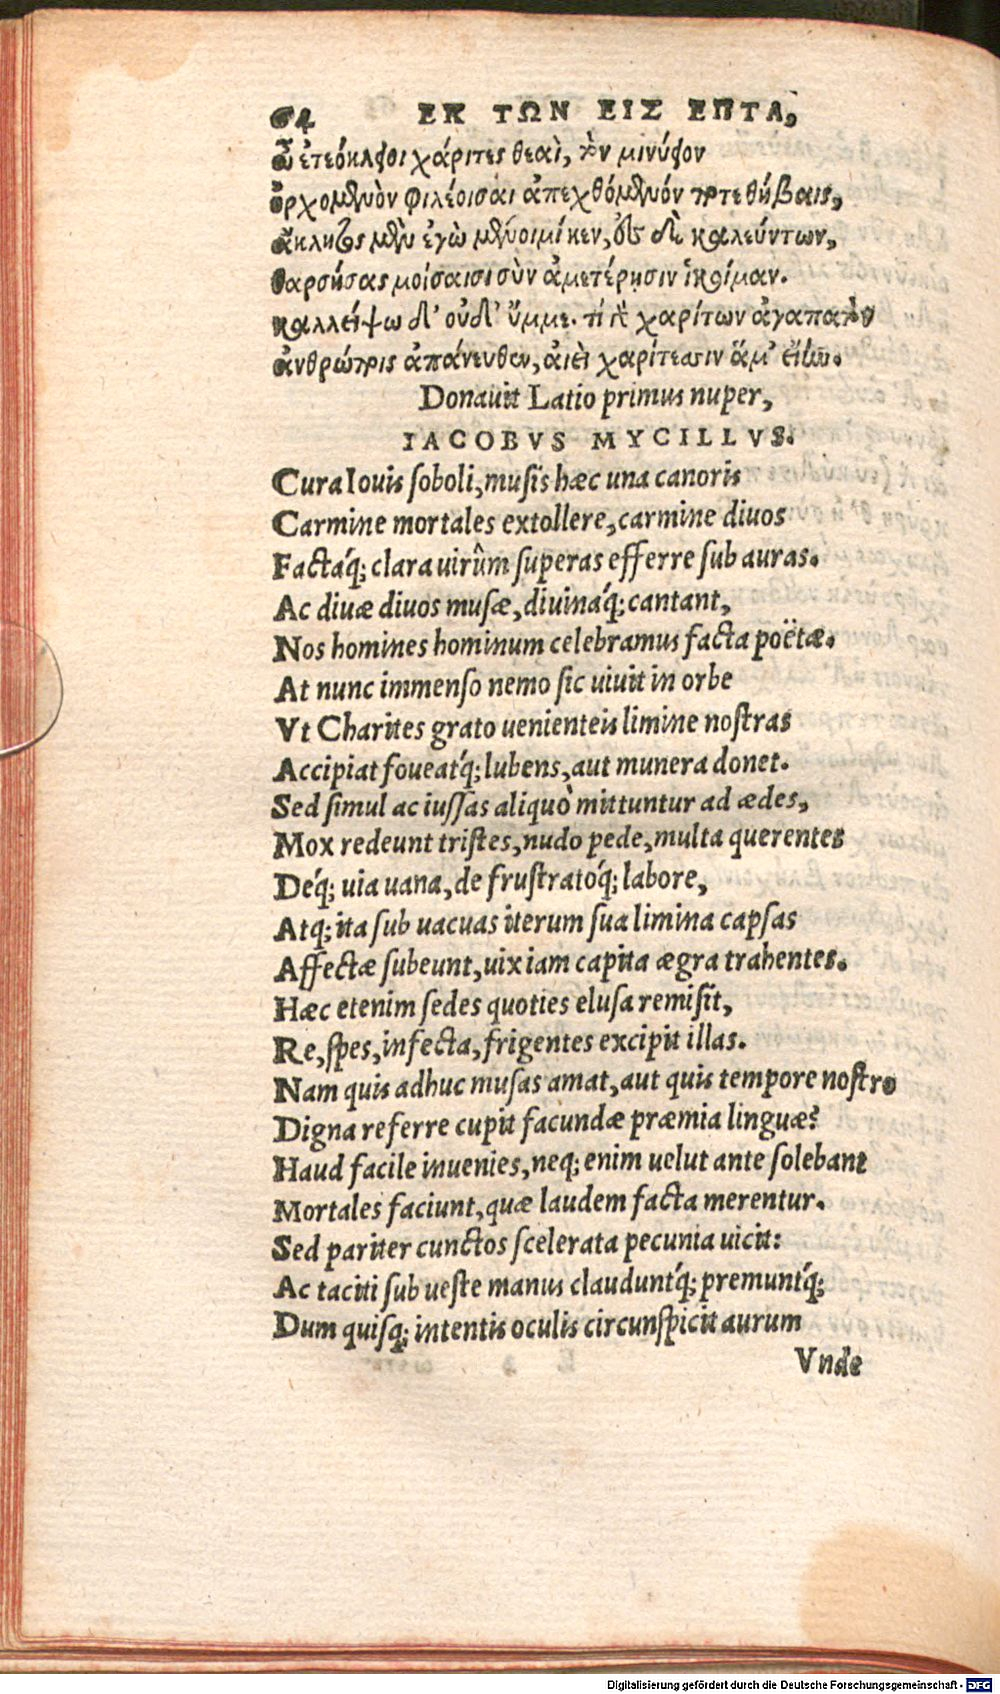 64 ΕΚ ΤΩΝ ΕΙΣ ΕΠΤΑ,
ὦ ἐτεόκλφοι χάριτες θεαὶ, τὸν μινύφον
ὀρχομῤυὸν φιλέοισαι ἀπεχθόμῤυόν ποτε θήβαις,
ἄκλητος μὲν ἐγὼ μένοιμί κεν, ἐς δὲ καλεύντων,
θαρσήσας μοίσαισι σὺν ἁμετέρῃσιν ἱκοίμαν.
καλλείψω δ᾽ οὐδ᾽ ὔμμε. τί γὰρ χαρίτων ἀγαπατὸν
ἀνθρώποις ἀπάνευθεν, ἀιεὶ χαρίτεσσιν ἅμ᾽ εἴην.
Donauit Latio primus nuper,
IACOBVS MYCILLVS.
Cura Iouis soboli, musis hæc una canoris
Carmine mortales extollere, carmine diuos
Factáq; clara uirûm superas efferre sub auras.
Ac diuæ diuos musæ, diuináq; cantant,
Nos homines hominum celebramus facta poëtæ.
At nunc immenso nemo sic uiuit in orbe
Vt Charites grato uenienteis limine nostras
Accipiat foueatq́; lubens, aut munera donet.
Sed simul ac iussas aliquò mittuntur ad ædes,
Mox redeunt tristes, nudo pede, multa querentes
Déq; uia uana, de frustratóq; labore,
Atq; ita sub uacuas iterum sua limina capsas
Affectæ subeunt, uix iam capita ægra trahentes.
Hæc etenim sedes quoties elusa remisit,
Re, spes, infecta, frigentes excipit illas.
Nam quis adhuc musas amat, aut quis tempore nostro
Digna referre cupit facundæ præmia linguæ?
Haud facile inuenies, neq; enim uelut ante solebant
Mortales faciunt, quæ laudem facta merentur.
Sed pariter cunctos scelerata pecunia uicit:
Ac taciti sub ueste manus clauduntq́; premuntq́;
Dum quisq; intentis oculis circunspicit aurum
Vnde
Digitalisierung gefördert durch die Deutsche Forschungsgemeinschaft - DFG